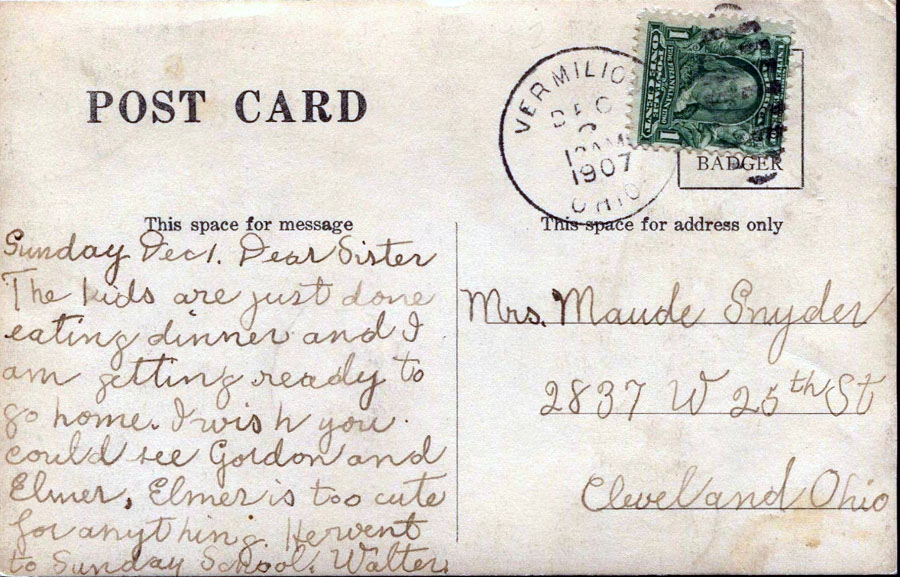 POST CARD
VERMILIO
DEC
1907
OHIO
1 ONE CENT 1
BADGER
This space for message
Sunday Dec 1. Dear Sister
The kids are just done
eating dinner and I
am getting ready to
go home. I wish you
could see Gordon and
Elmer, Elmer is too cute
for anything. He went
to Sunday School. Walter.
This space for address only
Mrs. Maude Snyder
2837 W 25th St
Cleveland Ohio